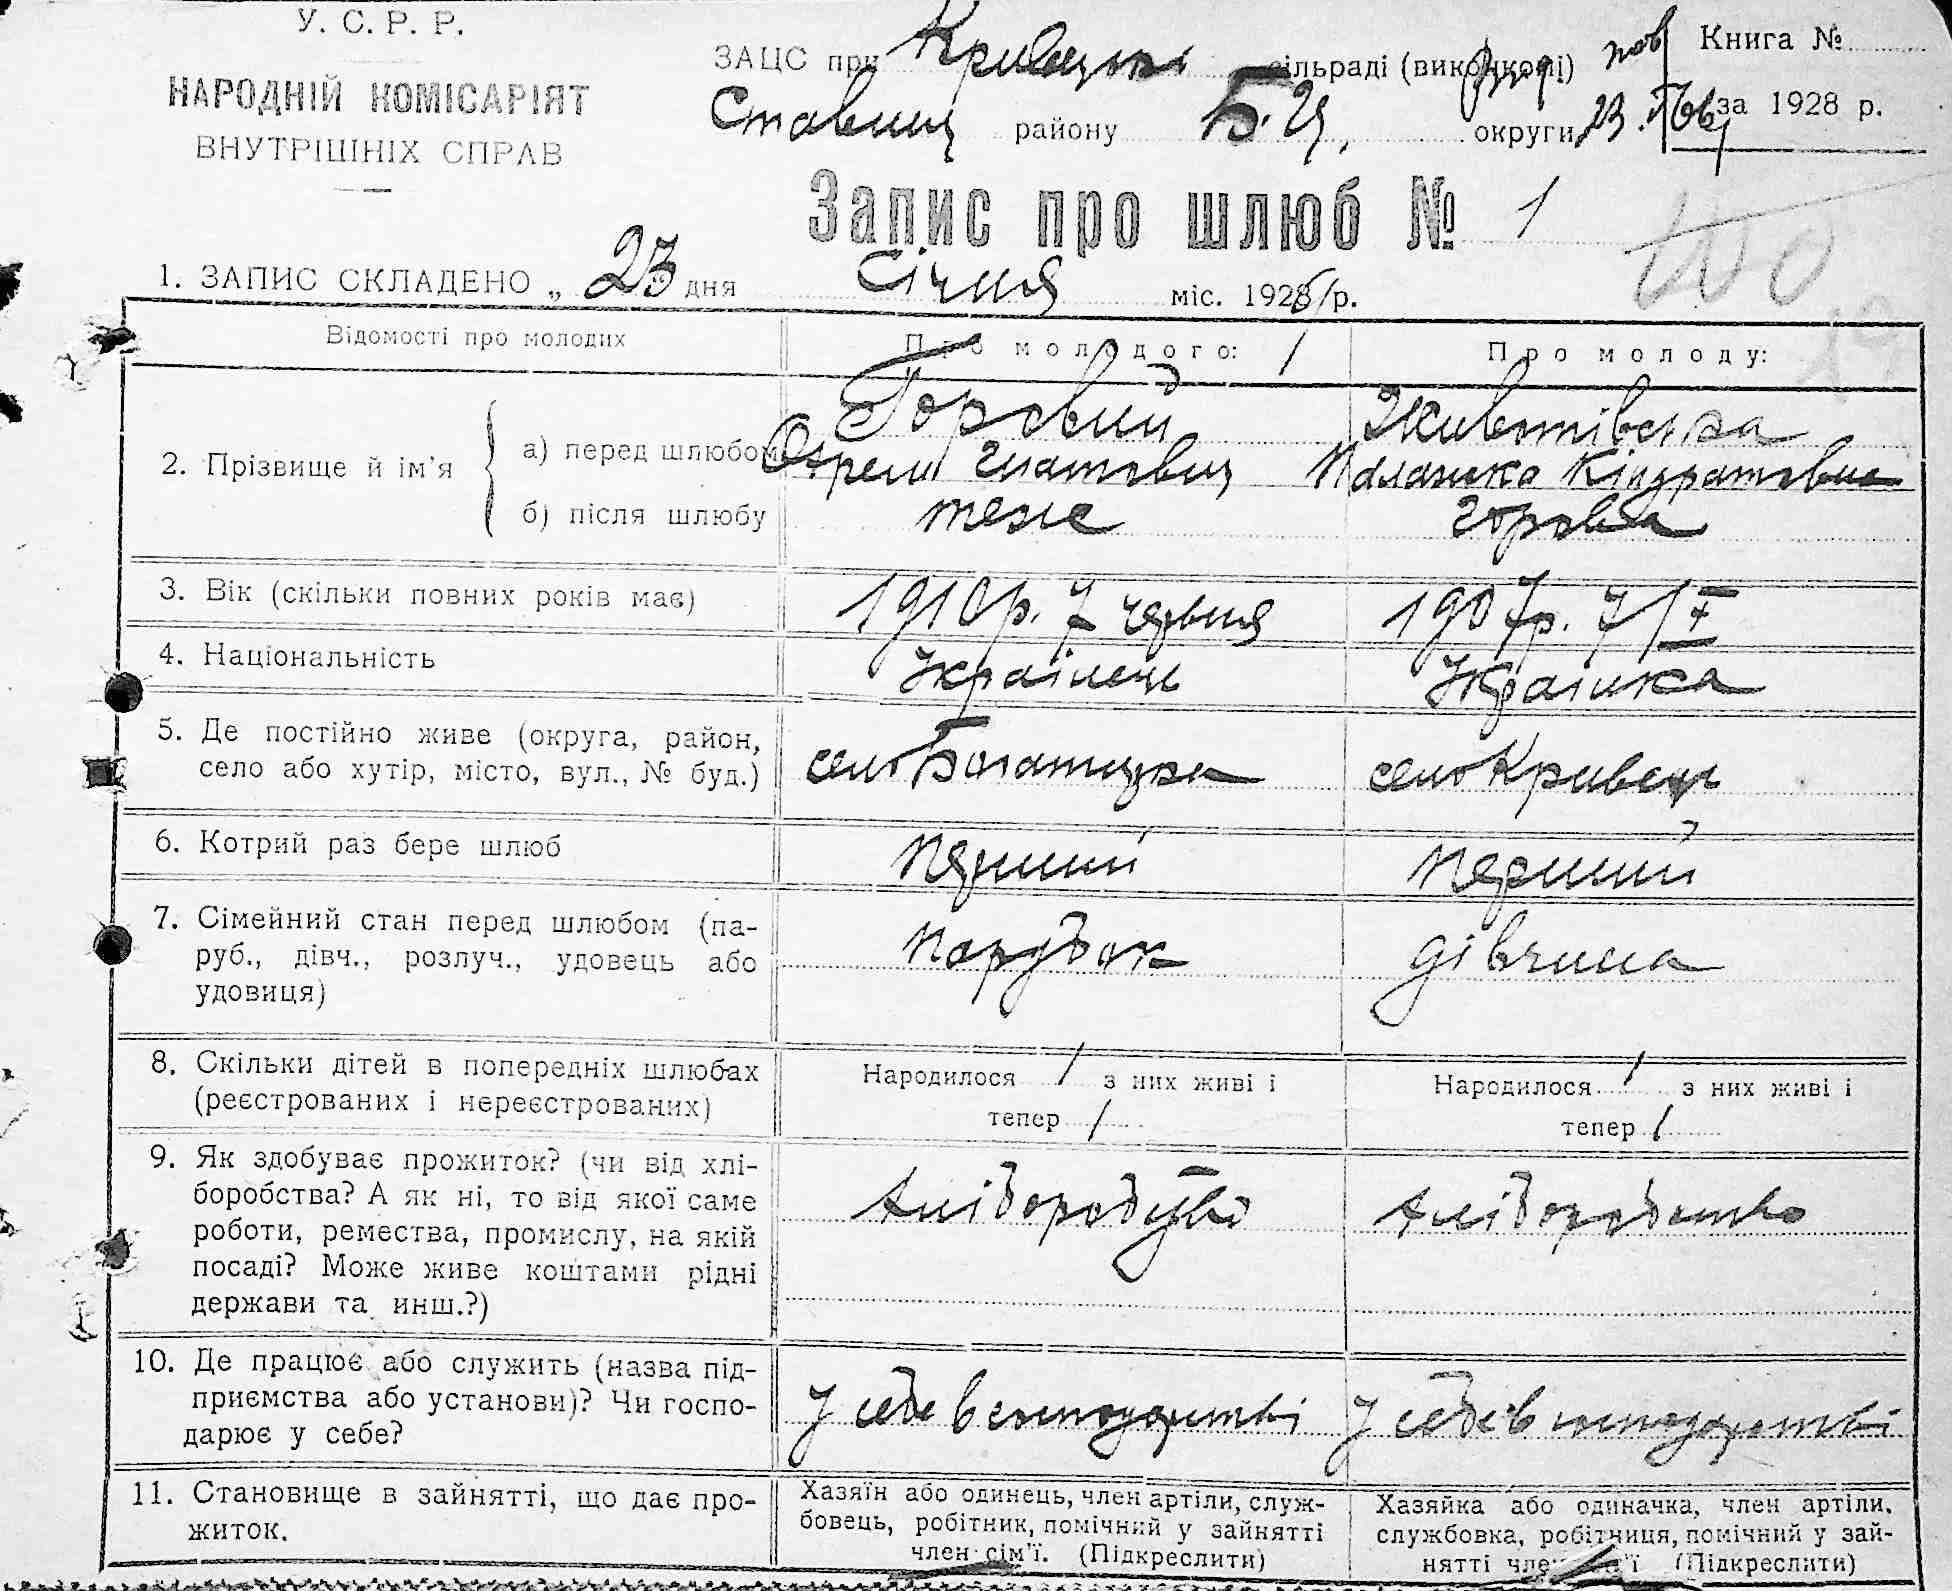 У. С. Р. Р.
НАРОДНІЙ КОМІСАРІЯТ
ВНУТРІШНІХ СПРАВ
ЗАЦС при Кривецькі сільраді (виконкомі)
Книга №
Ставищ району Б. Ц. округи
за 1928 р.
Запис про шлюб № 1
1. ЗАПИС СКЛАДЕНО „ 23 дня Січня міс. 1928 р.
Відомості про молодих
Про молодого:
Про молоду:
2. Прізвище й ім'я
а) перед шлюбом
Горовий
Гнатович
Животівська
Палажка Кіндратовна
б) після шлюбу
теже
Горова
3. Вік (скільки повних років має)
1910 р. 7 червня
1907 р. 7/X
4. Національність
Українець
Українка
5. Де постійно живе (округа, район,
село або хутір, місто, вул., № буд.)
село Богатирка
село Кривець
6. Котрий раз бере шлюб
перший
перший
7. Сімейний стан перед шлюбом (па-
руб., дівч., розлуч., удовець або
удовиця)
парубок
дівчина
8. Скільки дітей в попередніх шлюбах
(реєстрованих і нереєстрованих)
Народилося / з них живі і
тепер /
Народилося / з них живі і
тепер /
9. Як здобуває прожиток? (чи від хлі-
боробства? А як ні, то від якої саме
роботи, ремества, промислу, на якій
посаді? Може живе коштами рідні
держави та инш.?)
хліборобство
хліборобство
10. Де працює або служить (назва під-
приємства або установи)? Чи госпо-
дарює у себе?
У себе в господарстві
У себе в господарстві
11. Становище в зайнятті, що дає про-
житок.
Хазяїн або одинець, член артіли, служ-
бовець, робітник, помічний у зайнятті
член сім'ї. (Підкреслити)
Хазяйка або одиначка, член артіли,
службовка, робітниця, помічний у зай-
нятті член сім'ї (Підкреслити)